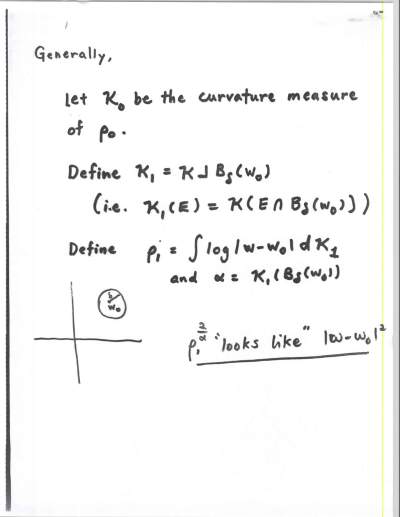 Generally,
let K₀ be the curvature measure
of ρ₀.
Define K₁ = K⅃ B_δ(w₀)
(i.e. K₁(E) = K(E ∩ B_δ(w₀)))
Define ρ₁ = ∫ log|w-w₀| dK₁
and α = K₁(B_δ(w₀))
δ
w₀
ρ₁^{2/α} "looks like" |w-w₀|²